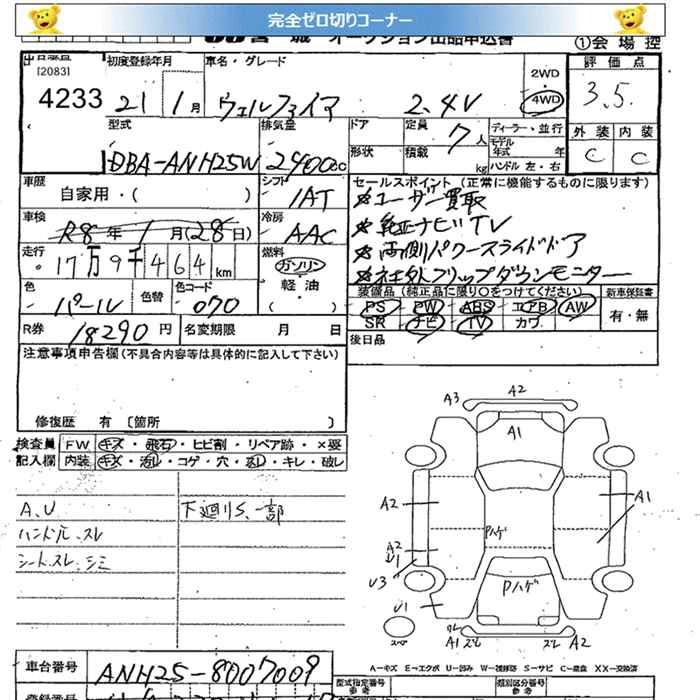 完全ゼロ切りコーナー
オークション出品申込書
①会場控
[2083]
4233
初度登録年月
21 1月
車名・グレード
ヴェルファイア 2.4V
2WD
4WD
評価点
3.5
外装 内装
C C
型式
DBA-ANH25W
排気量
2400cc
ドア
形状
定員
7人
積載
kg
ディーラー・並行
モデル年式 年
ハンドル 左・右
車歴
自家用・( )
シフト
IAT
セールスポイント (正常に機能するものに限ります)
☆ユーザー買取
☆純正ナビTV
☆両側パワースライドドア
☆社外フリップダウンモニター
車検
R8年 1月(28日)
冷房
AAC
走行
17万9千464km
燃料
ガソリン
軽油
( )
色
パール
色替
色コード
070
R券
18290円
名変期限 月 日
装備品 (純正品に限り○をつけてください)
PS PW ABS エアB AW
SR ナビ TV カワ
新車保証書
有・無
後日品
注意事項申告欄(不具合内容等は具体的に記入して下さい)
修復歴 有 〔箇所 〕
検査員記入欄
FW キズ・飛石・ヒビ割・リペア跡・×要
内装 キズ・汚れ・コゲ・穴・凹し・キレ・破レ
A、U
ハンドル、スレ
シート、スレ、シミ
下廻りS、一部
A3 A2
A1
A2
A1
Pハゲ
A2
U1
U3
Pハゲ
U1
スペア
A1
A2
A−キズ E−エクボ U−凹み W−補修跡 S−サビ C−腐食 XX−交換済
車台番号
ANH25-8007009
型式指定番号
参考
類別区分番号
登録番号